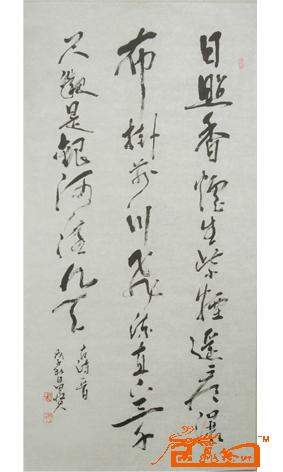 日照香爐生紫煙遙看瀑
布掛前川飛流直下三千
尺疑是銀河落九天
古詩一首